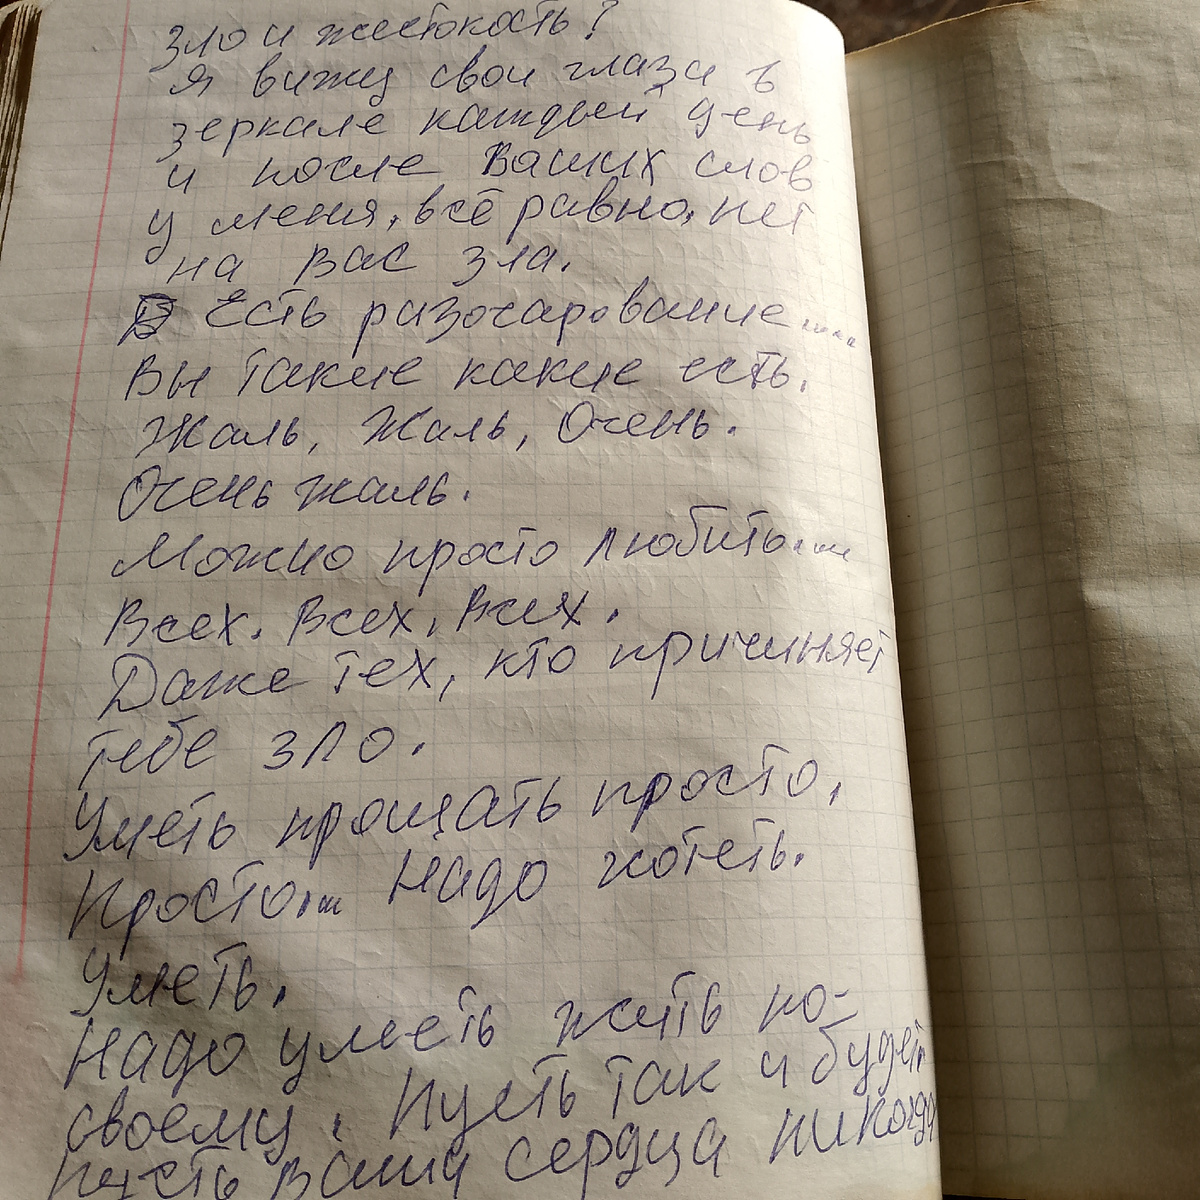 зло и жестокость?
Я вижу свои глаза в
зеркале каждый день
и после Ваших слов
у меня, всё равно, нет
на Вас зла.
Есть разочарование....
Вы такие какие есть.
Жаль, Жаль, Очень.
Очень жаль.
Можно просто любить...
Всех. Всех, Всех.
Даже тех, кто причиняет
тебе зло.
Уметь прощать просто,
Просто... Надо хотеть.
Уметь.
Надо уметь жить по-
своему. Пусть так и будет.
Пусть ваши сердца никогда